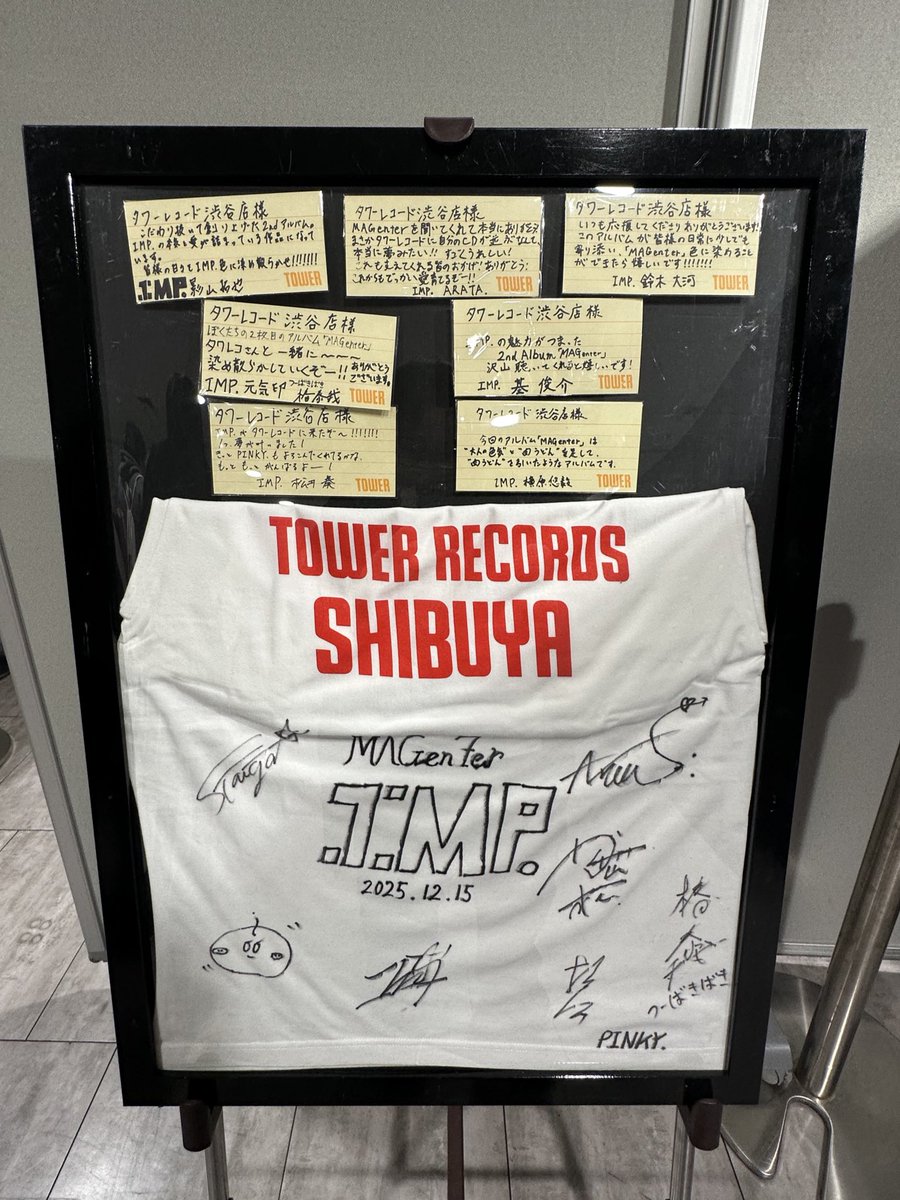 タワーレコード渋谷店様
こだわり抜いて創り上げた2ndアルバム。
IMP.の様々な愛が詰まっている作品になって
います。
皆様の日々もIMP.色に染め散らかせ!!!!!!!
I.M.P. 影山拓也
TOWER
タワーレコード渋谷店様
MAGenterを聞いてくれて本当にありがとう
まさかタワーレコードに自分のCDが並ぶなんて、
本当に夢みたい!! すっごくうれしい!
これも支えてくれる皆のおかげ!ありがとう!
これからもでっかい愛育てるぞー!!
IMP. ARATA.
TOWER
タワーレコード渋谷店様
いつも応援してくださりありがとうございます!
このアルバムが皆様の日常に少しでも
寄り添い、「MAGenter」色に染めること
ができたら嬉しいです!!!!!!!
IMP. 鈴木大河
TOWER
タワーレコード渋谷店様
ぼくたちの2枚目のアルバム「MAGenter」
タワレコさんと一緒に〜〜〜〜
染め散らかしていくぞー!! ありがとう
ございます。
IMP. 元気印 つばきばき 椿泰我
TOWER
タワーレコード渋谷店様
IMP.の魅力がつまった
2nd Album「MAGenter」
沢山聴いてくれると嬉しいです!
IMP. 基 俊介
TOWER
タワーレコード渋谷店様
IMP.がタワーレコードに来たぞ〜!!!!!!!
1つ夢が叶いました!
きっとPINKY.もよろこんでくれてるかな。
もっともっとがんばるよー!
IMP. 松井 奏
TOWER
タワーレコード渋谷店様
今回のアルバム「MAGenter」は
"大人の色気"と"肉うどん"を足して、
"肉うどん"を引いたようなアルバムです。
IMP. 横原悠毅
TOWER
TOWER RECORDS
SHIBUYA
MAGenTer
I.M.P.
2025.12.15
つーばきばき
PINKY.